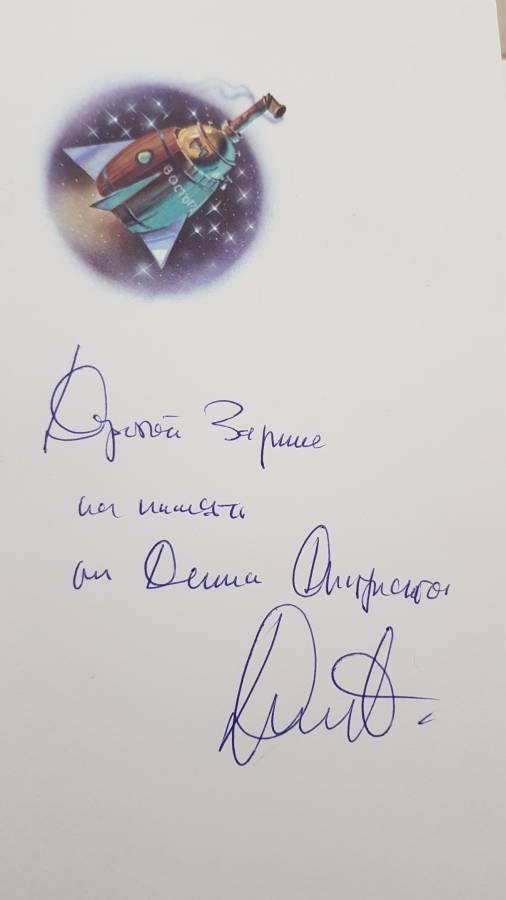 ВОСТОК
Дорогой Зарине
на память
от Дениса Дмитриева